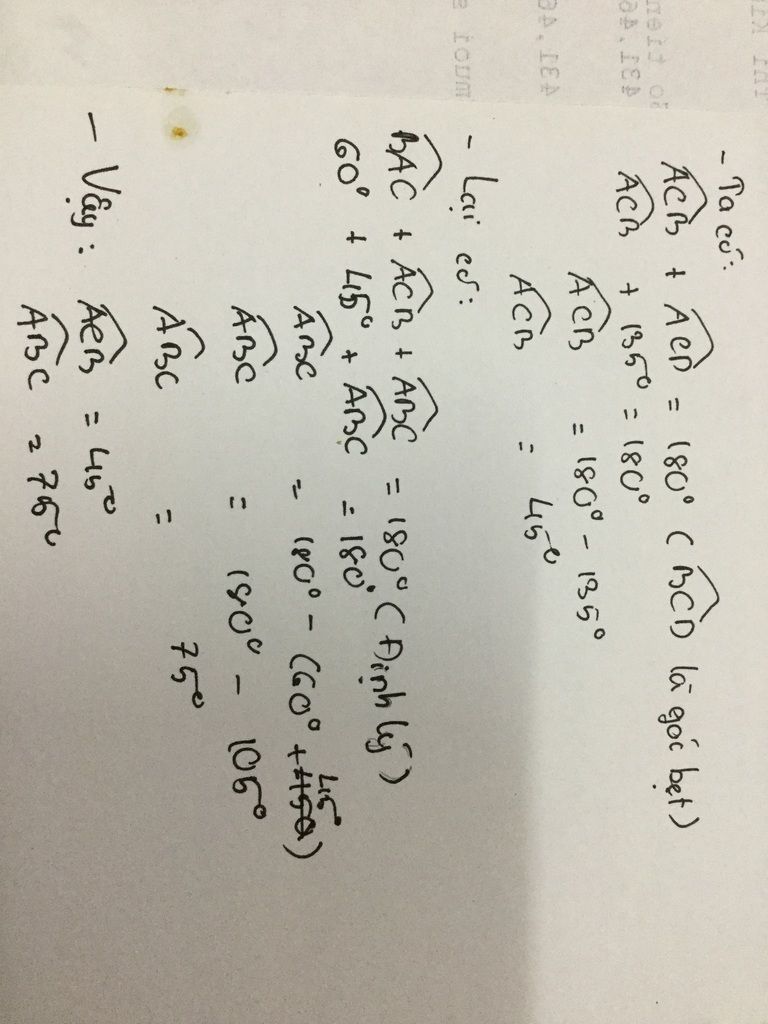 - Ta có:
ACB + ACD = 180° (BCD là góc bẹt)
ACB + 135° = 180°
ACB = 180° - 135°
ACB = 45°
- Lại có:
BAC + ACB + ABC = 180° (Định lý)
60° + 45° + ABC = 180°
ABC = 180° - (60° + 45°)
ABC = 180° - 105°
ABC = 75°
- Vậy: ACB = 45°
ABC = 75°